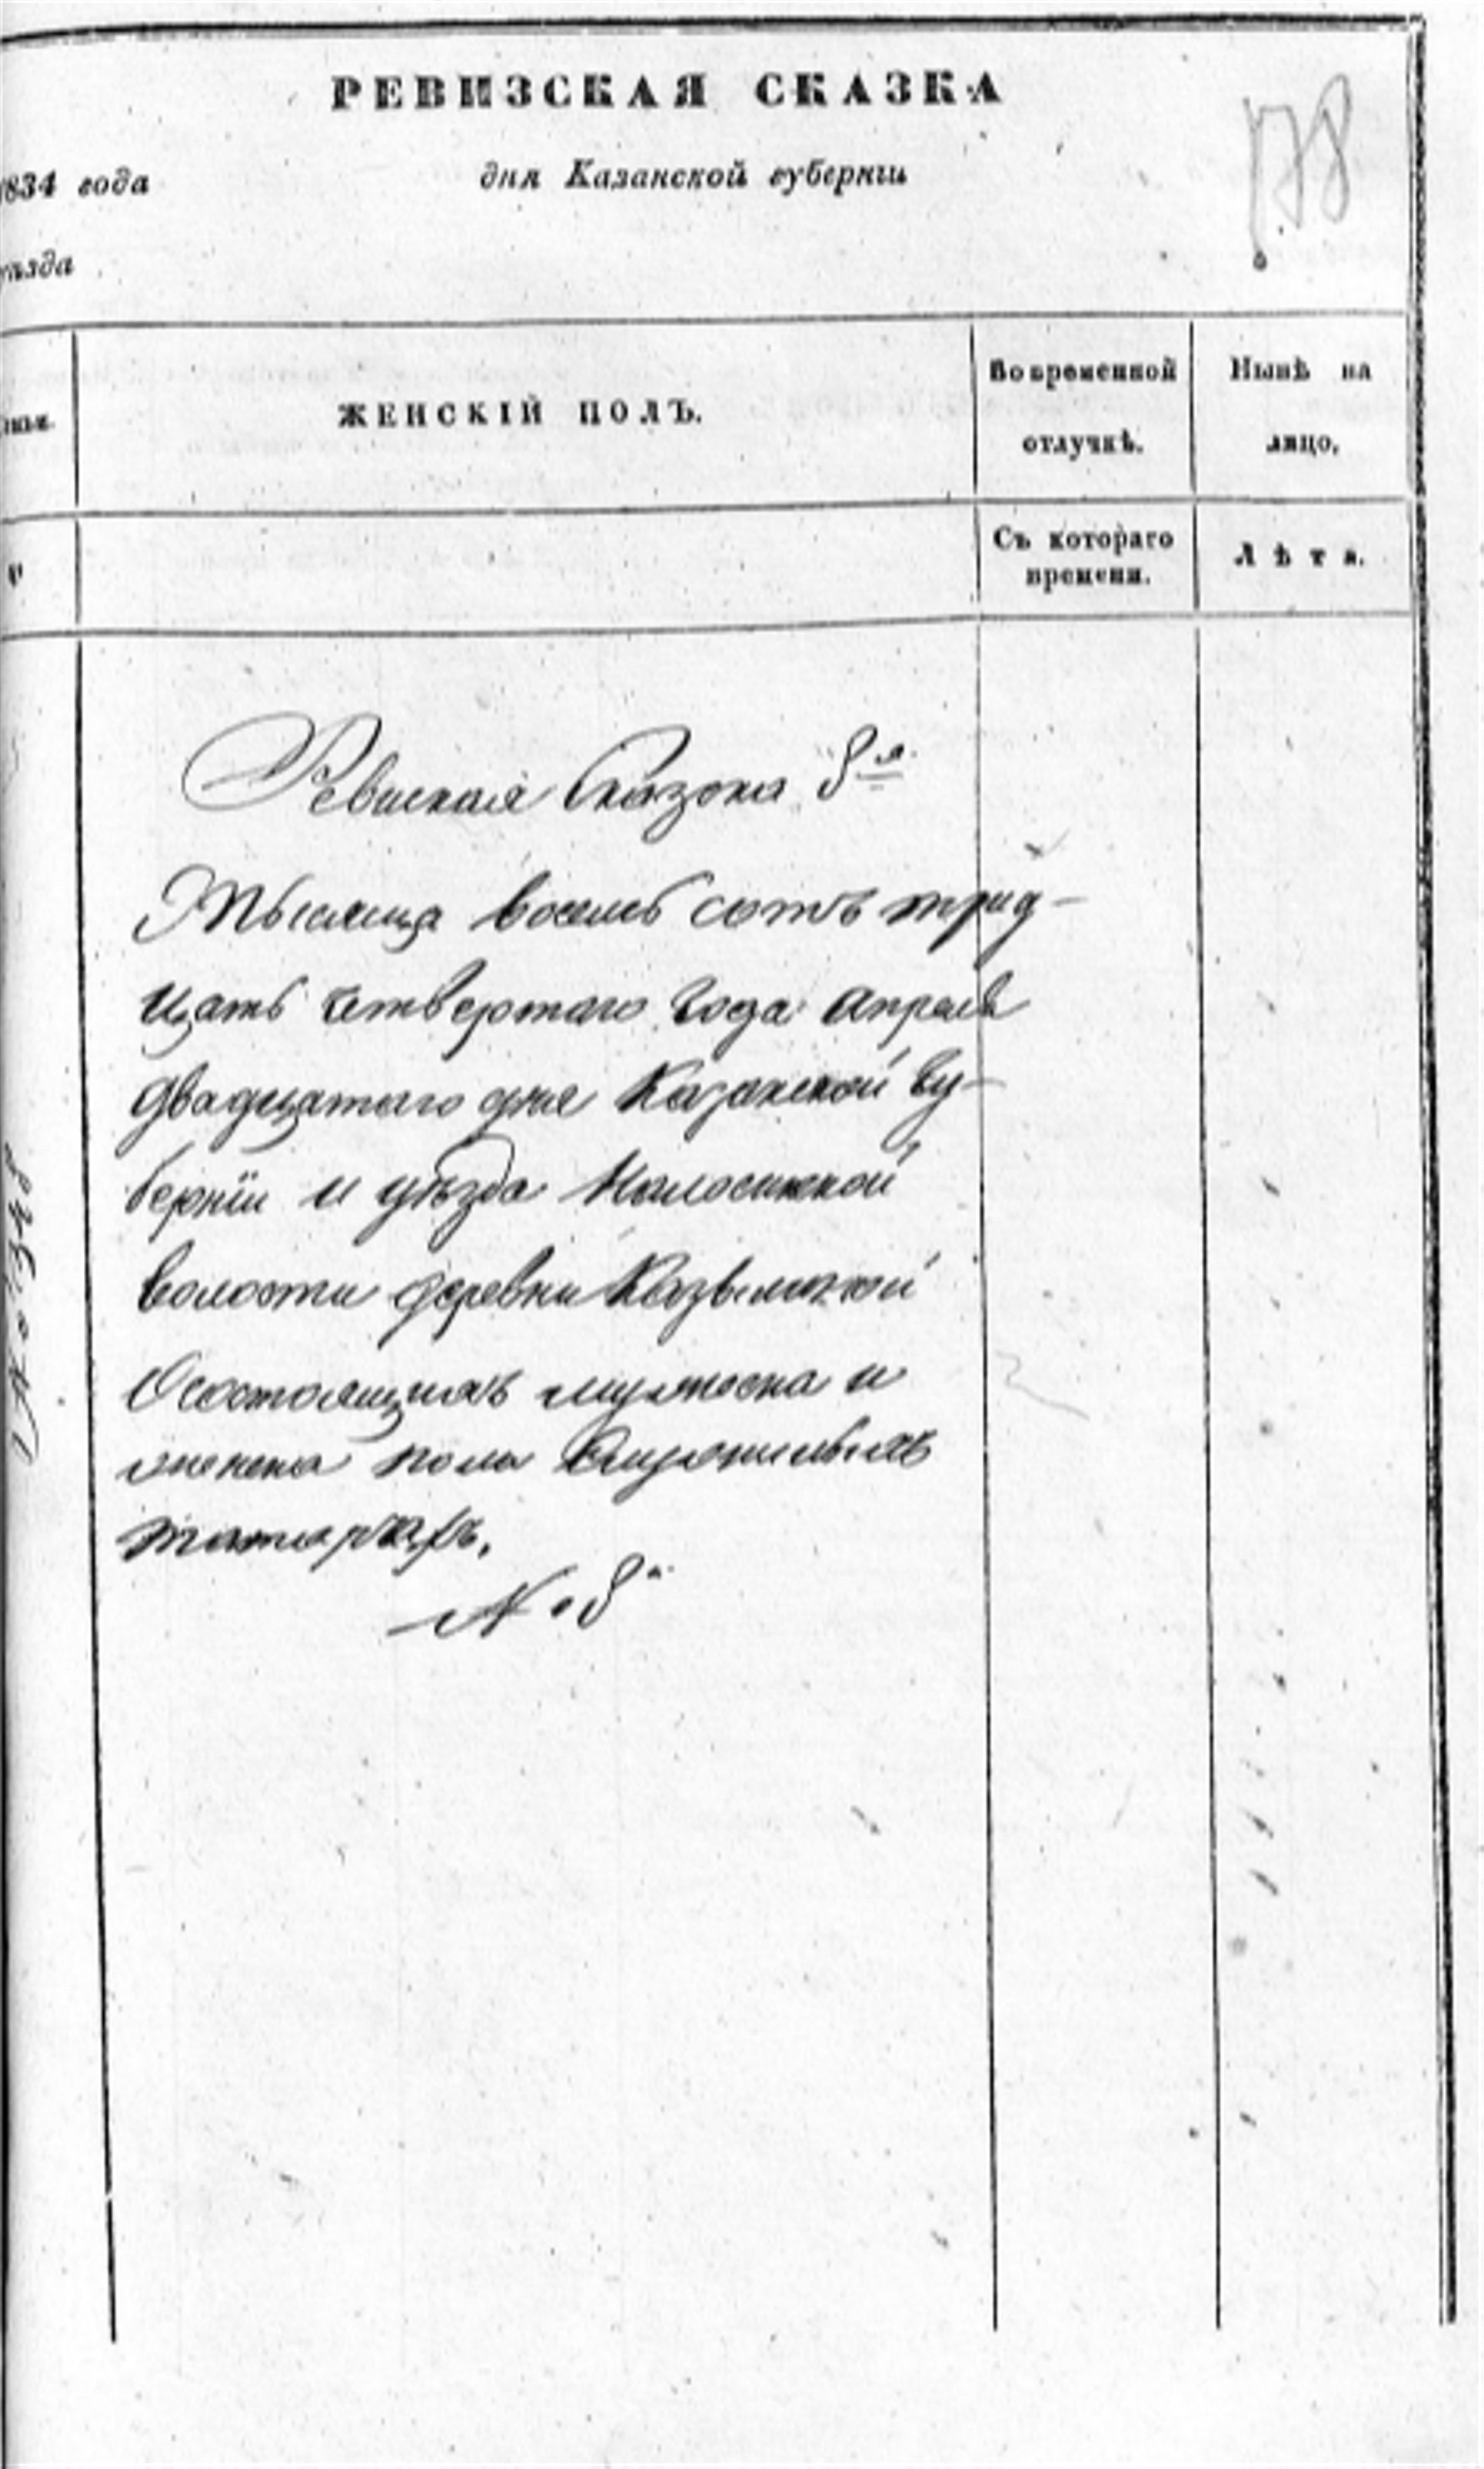 РЕВИЗСКАЯ СКАЗКА
178
1834 года дня Казанской губернiи
уѣзда
ЖЕНСКIЙ ПОЛЪ.
Во временной
отлучкѣ.
Нынѣ на
лицо.
Съ котораго
времени.
Лѣта.
Ревиская Сказка 8я
Тысяща восемь сотъ трид-
цать четвертаго года апреля
двадцатаго дня Казанской гу-
бернiи и уѣзда
волости деревни
О состоящихъ мужеска и
женска пола служилыхъ
татарахъ.
№ 8